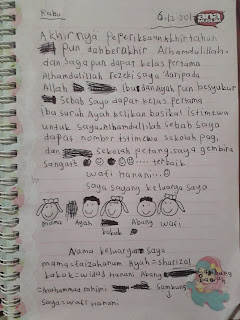 Rabu
6.12.2017
ana muslim
Akhirnya Peperiksaan Akhir tahun
pun dah berakhir Alhamdulillah.
dan Saya pun dapat kelas pertama
Alhamdulillah rezeki saya daripada
Allah Ibu dan Ayah pun besyukur
Sebab Saya dapat kelas pertama
Ibu suruh Ayah belikan basikal Istimewa
untuk saya. Alhamdulillah sebab Saya
dapat nombor istimewa sekolah pagi
dan sekolah petang. saya gembira
sangat .... terbaik
wafi hanani...
saya sayang keluarga saya
mama Ayah kakak Abang wafi
Nama keluarga saya
mama=faizaharum Ayah=sharizal
kakak=widad Hanani Abang
=muhammad rahimi Sambung
saya=wafi Hanani.
Sambung